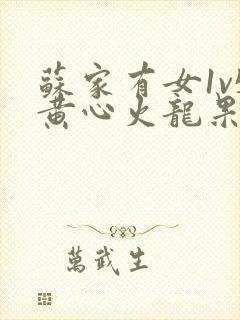 蘇家有女1v
黄心火龍果
萬武生